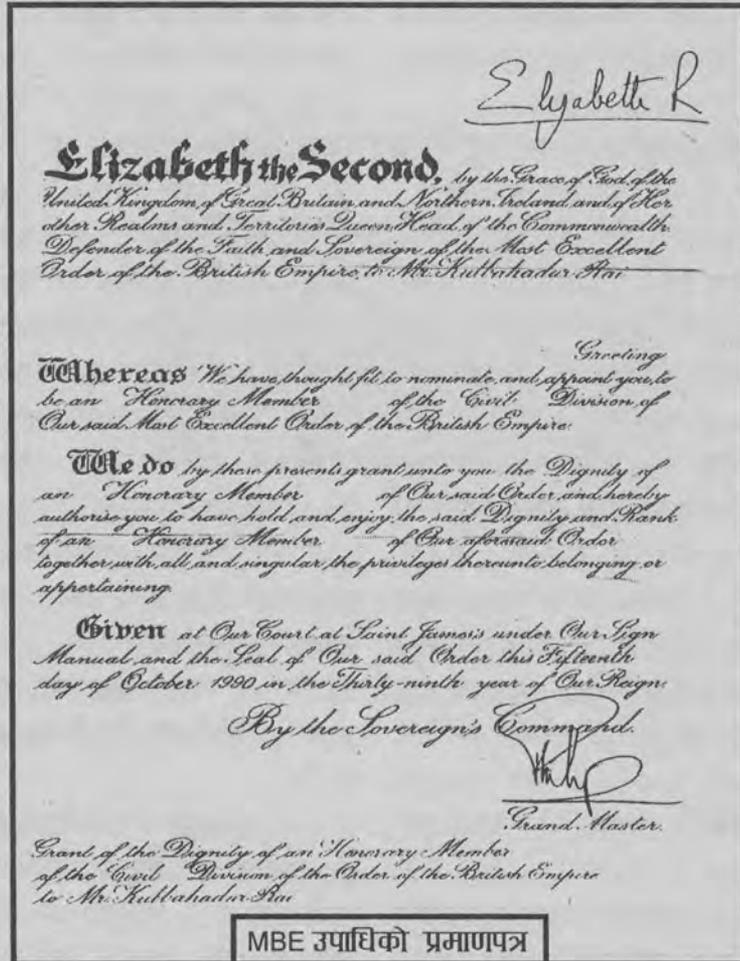 Elizabeth R
Elizabeth the Second, by the Grace of God of the
United Kingdom of Great Britain and Northern Ireland and of Her
other Realms and Territories Queen Head of the Commonwealth
Defender of the Faith and Sovereign of the Most Excellent
Order of the British Empire to Mr. Kulbahadur Rai
Greeting
Whereas We have thought fit to nominate and appoint you to
be an Honorary Member of the Civil Division of
Our said Most Excellent Order of the British Empire
We do by these presents grant unto you the Dignity of
an Honorary Member of Our said Order and hereby
authorise you to have hold and enjoy the said Dignity and Rank
of an Honorary Member of Our aforesaid Order
together with all and singular the privileges thereunto belonging or
appertaining.
Given at Our Court at Saint James's under Our Sign
Manual and the Seal of Our said Order this Fifteenth
day of October 1990 in the Thirty-ninth year of Our Reign.
By the Sovereign's Command.
Philip
Grand Master.
Grant of the Dignity of an Honorary Member
of the Civil Division of the Order of the British Empire
to Mr. Kulbahadur Rai
MBE उपाधिको प्रमाणपत्र